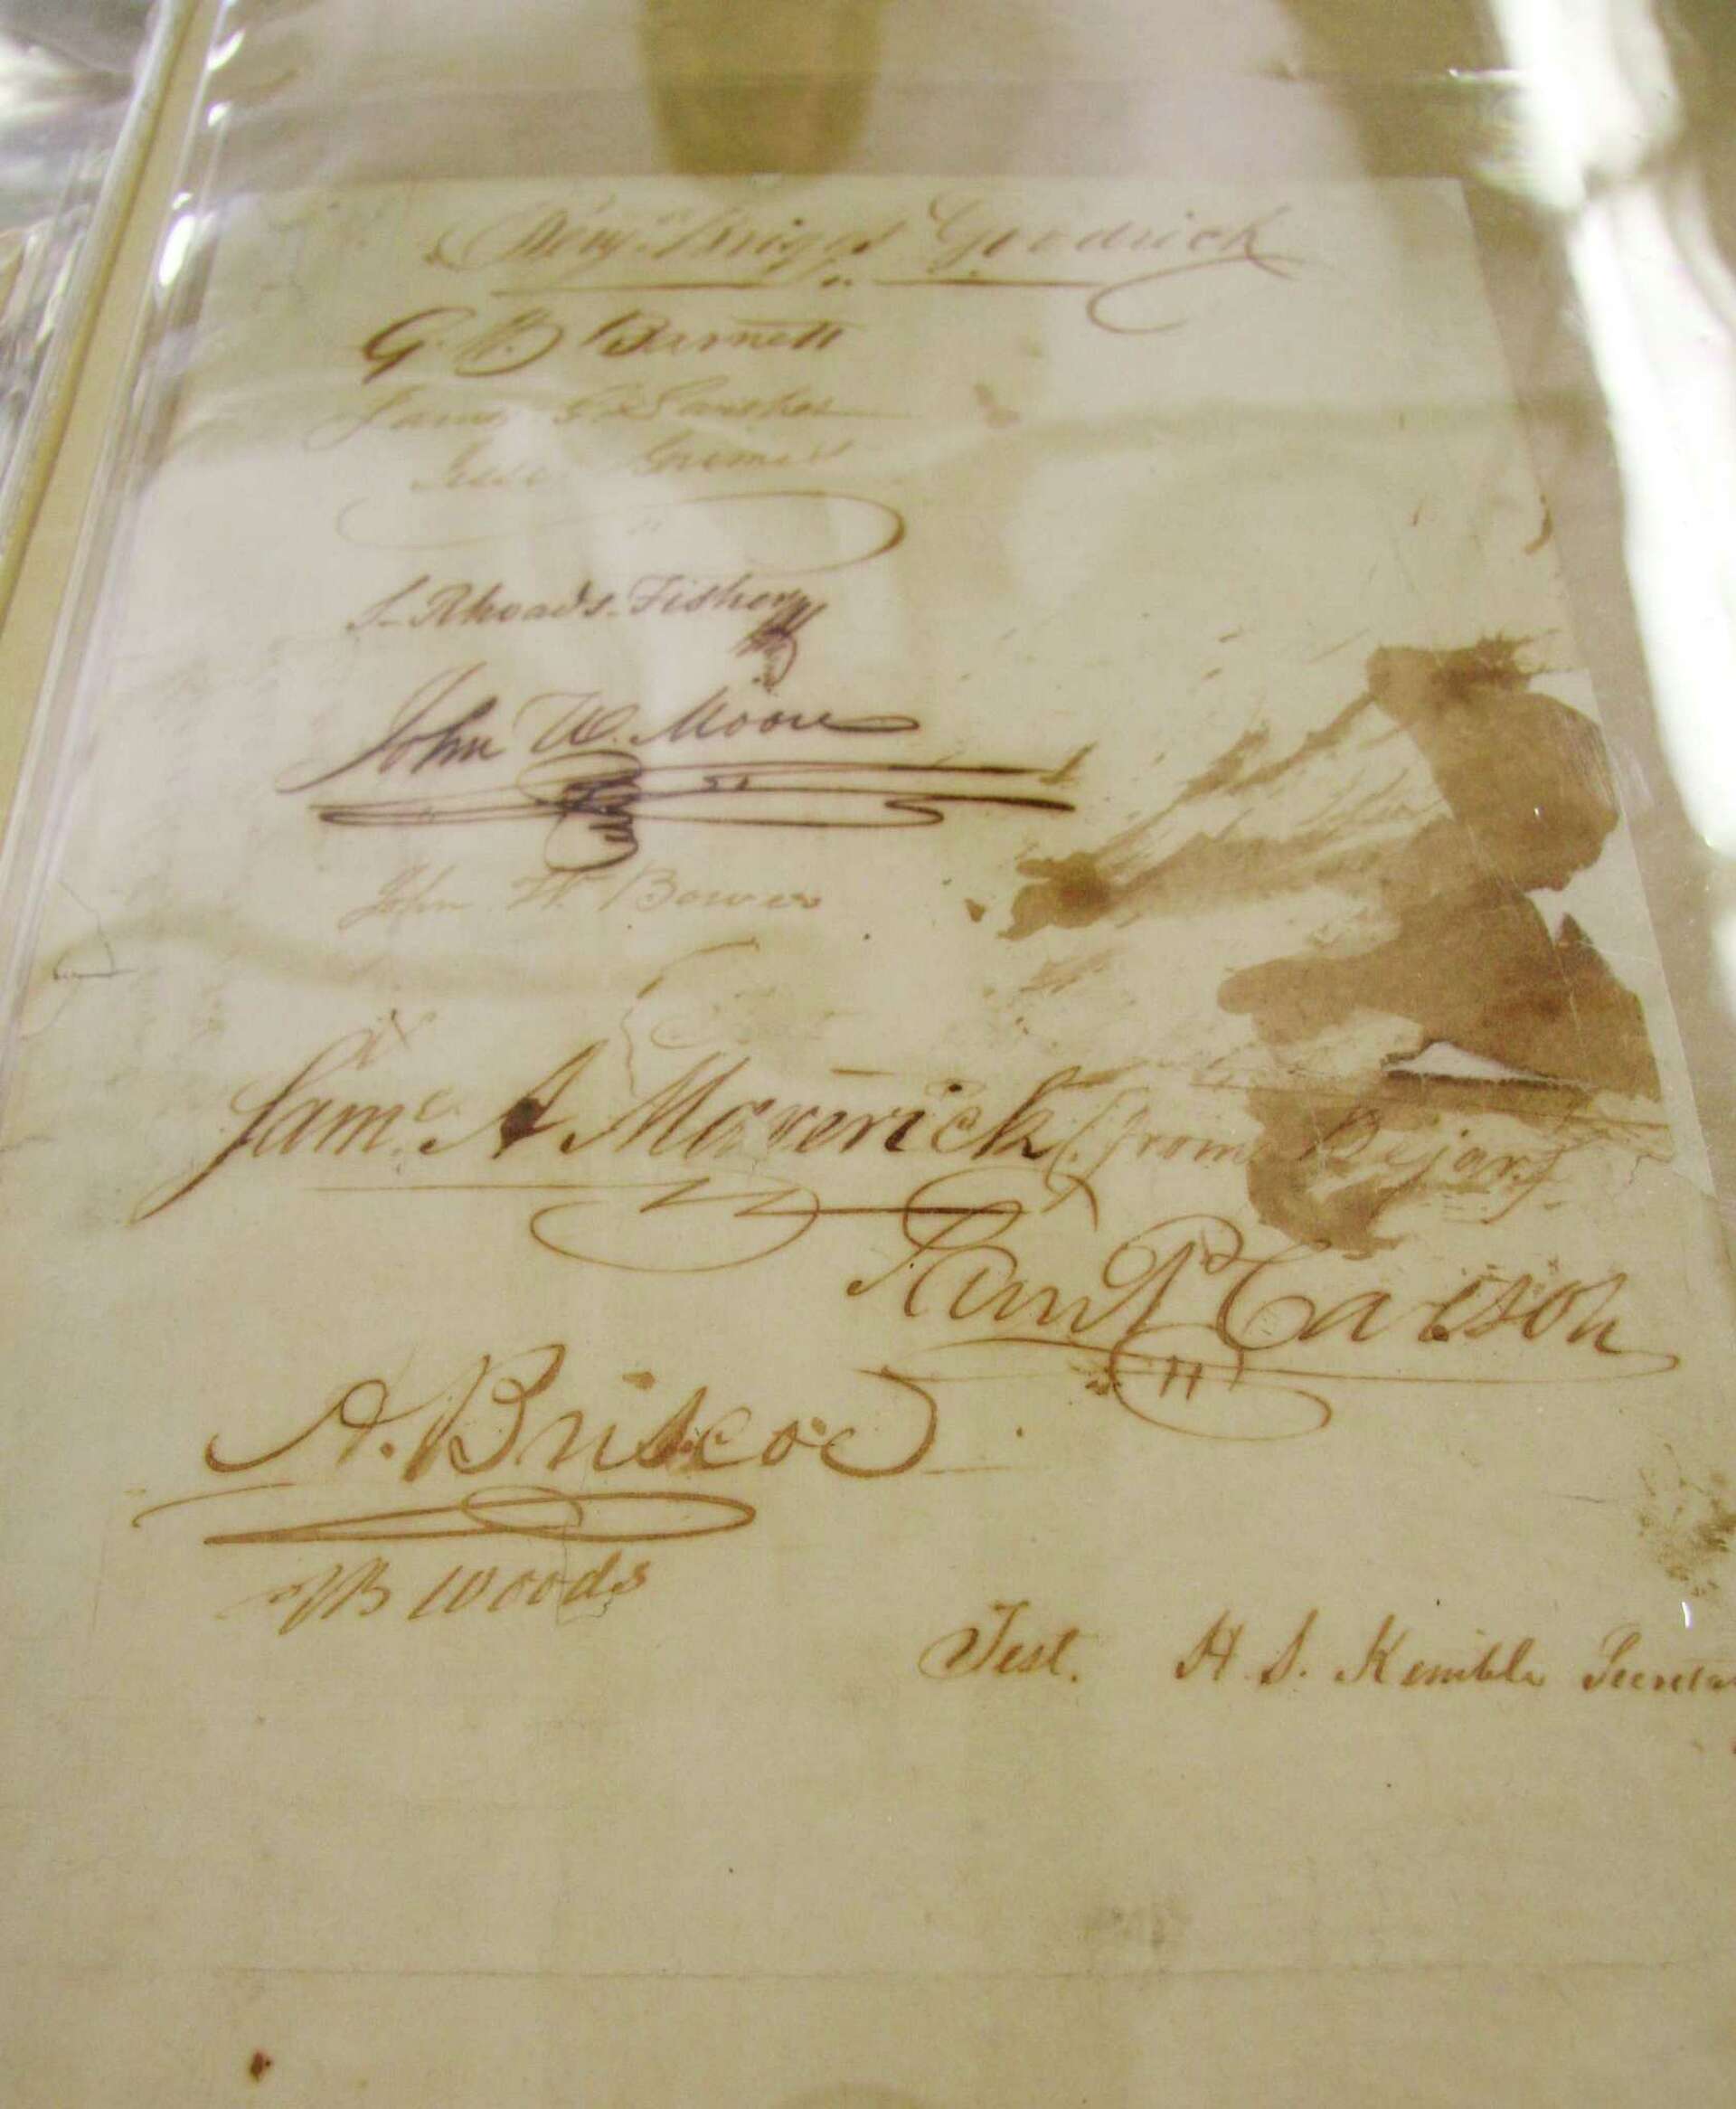 Benj. Briggs Goodrich
G. W. Barnett
James G. Swisher
Jesse Grimes
S. Rhoads Fisher
John W. Moore
John W. Bower
Saml. A Maverick (from Bejar)
Sam P Carson
A. Briscoe
J B Woods
Test. H. S. Kimble